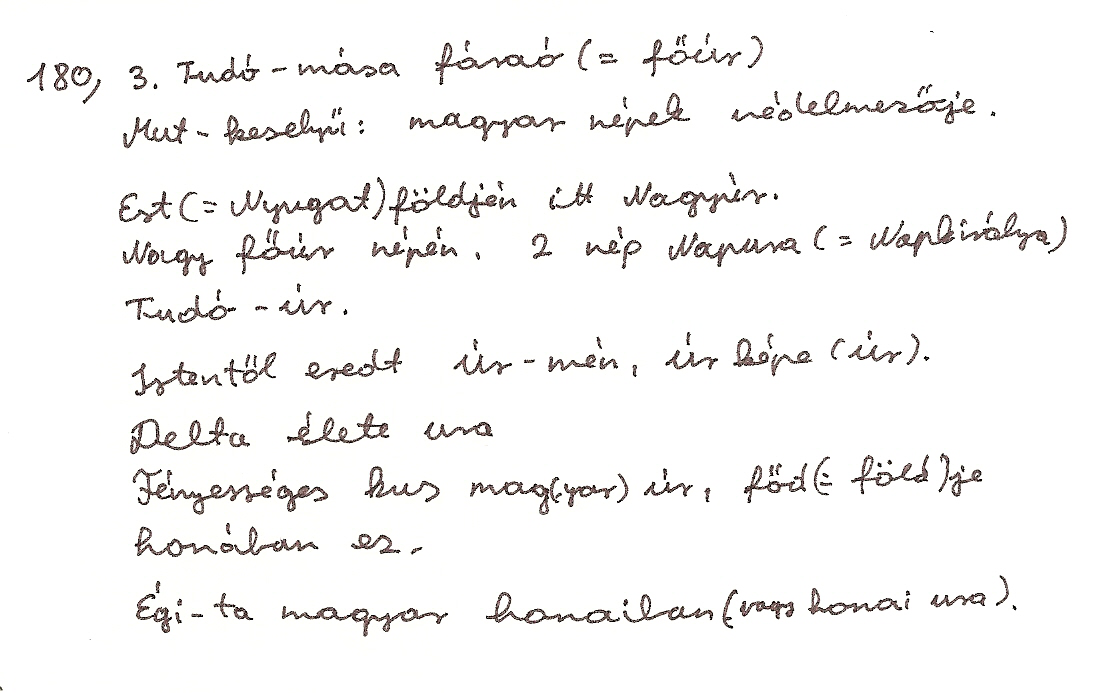 180, 3. Tudó-mása fáraó (= főúr)
Mut-keselyű: magyar népek védelmezője.
Est (= Nyugat) földjén itt Nagyúr.
Nagy főúr népén. 2 nép Napura (= Napkirálya)
Tudó-úr.
Istentől eredt úr-mén, úr képe (úr).
Delta élete ura
Fényességes kus mag(yar) úr, főd(= föld)je
honában ez.
Égi-ta magyar honaiban (vagy honai ura).